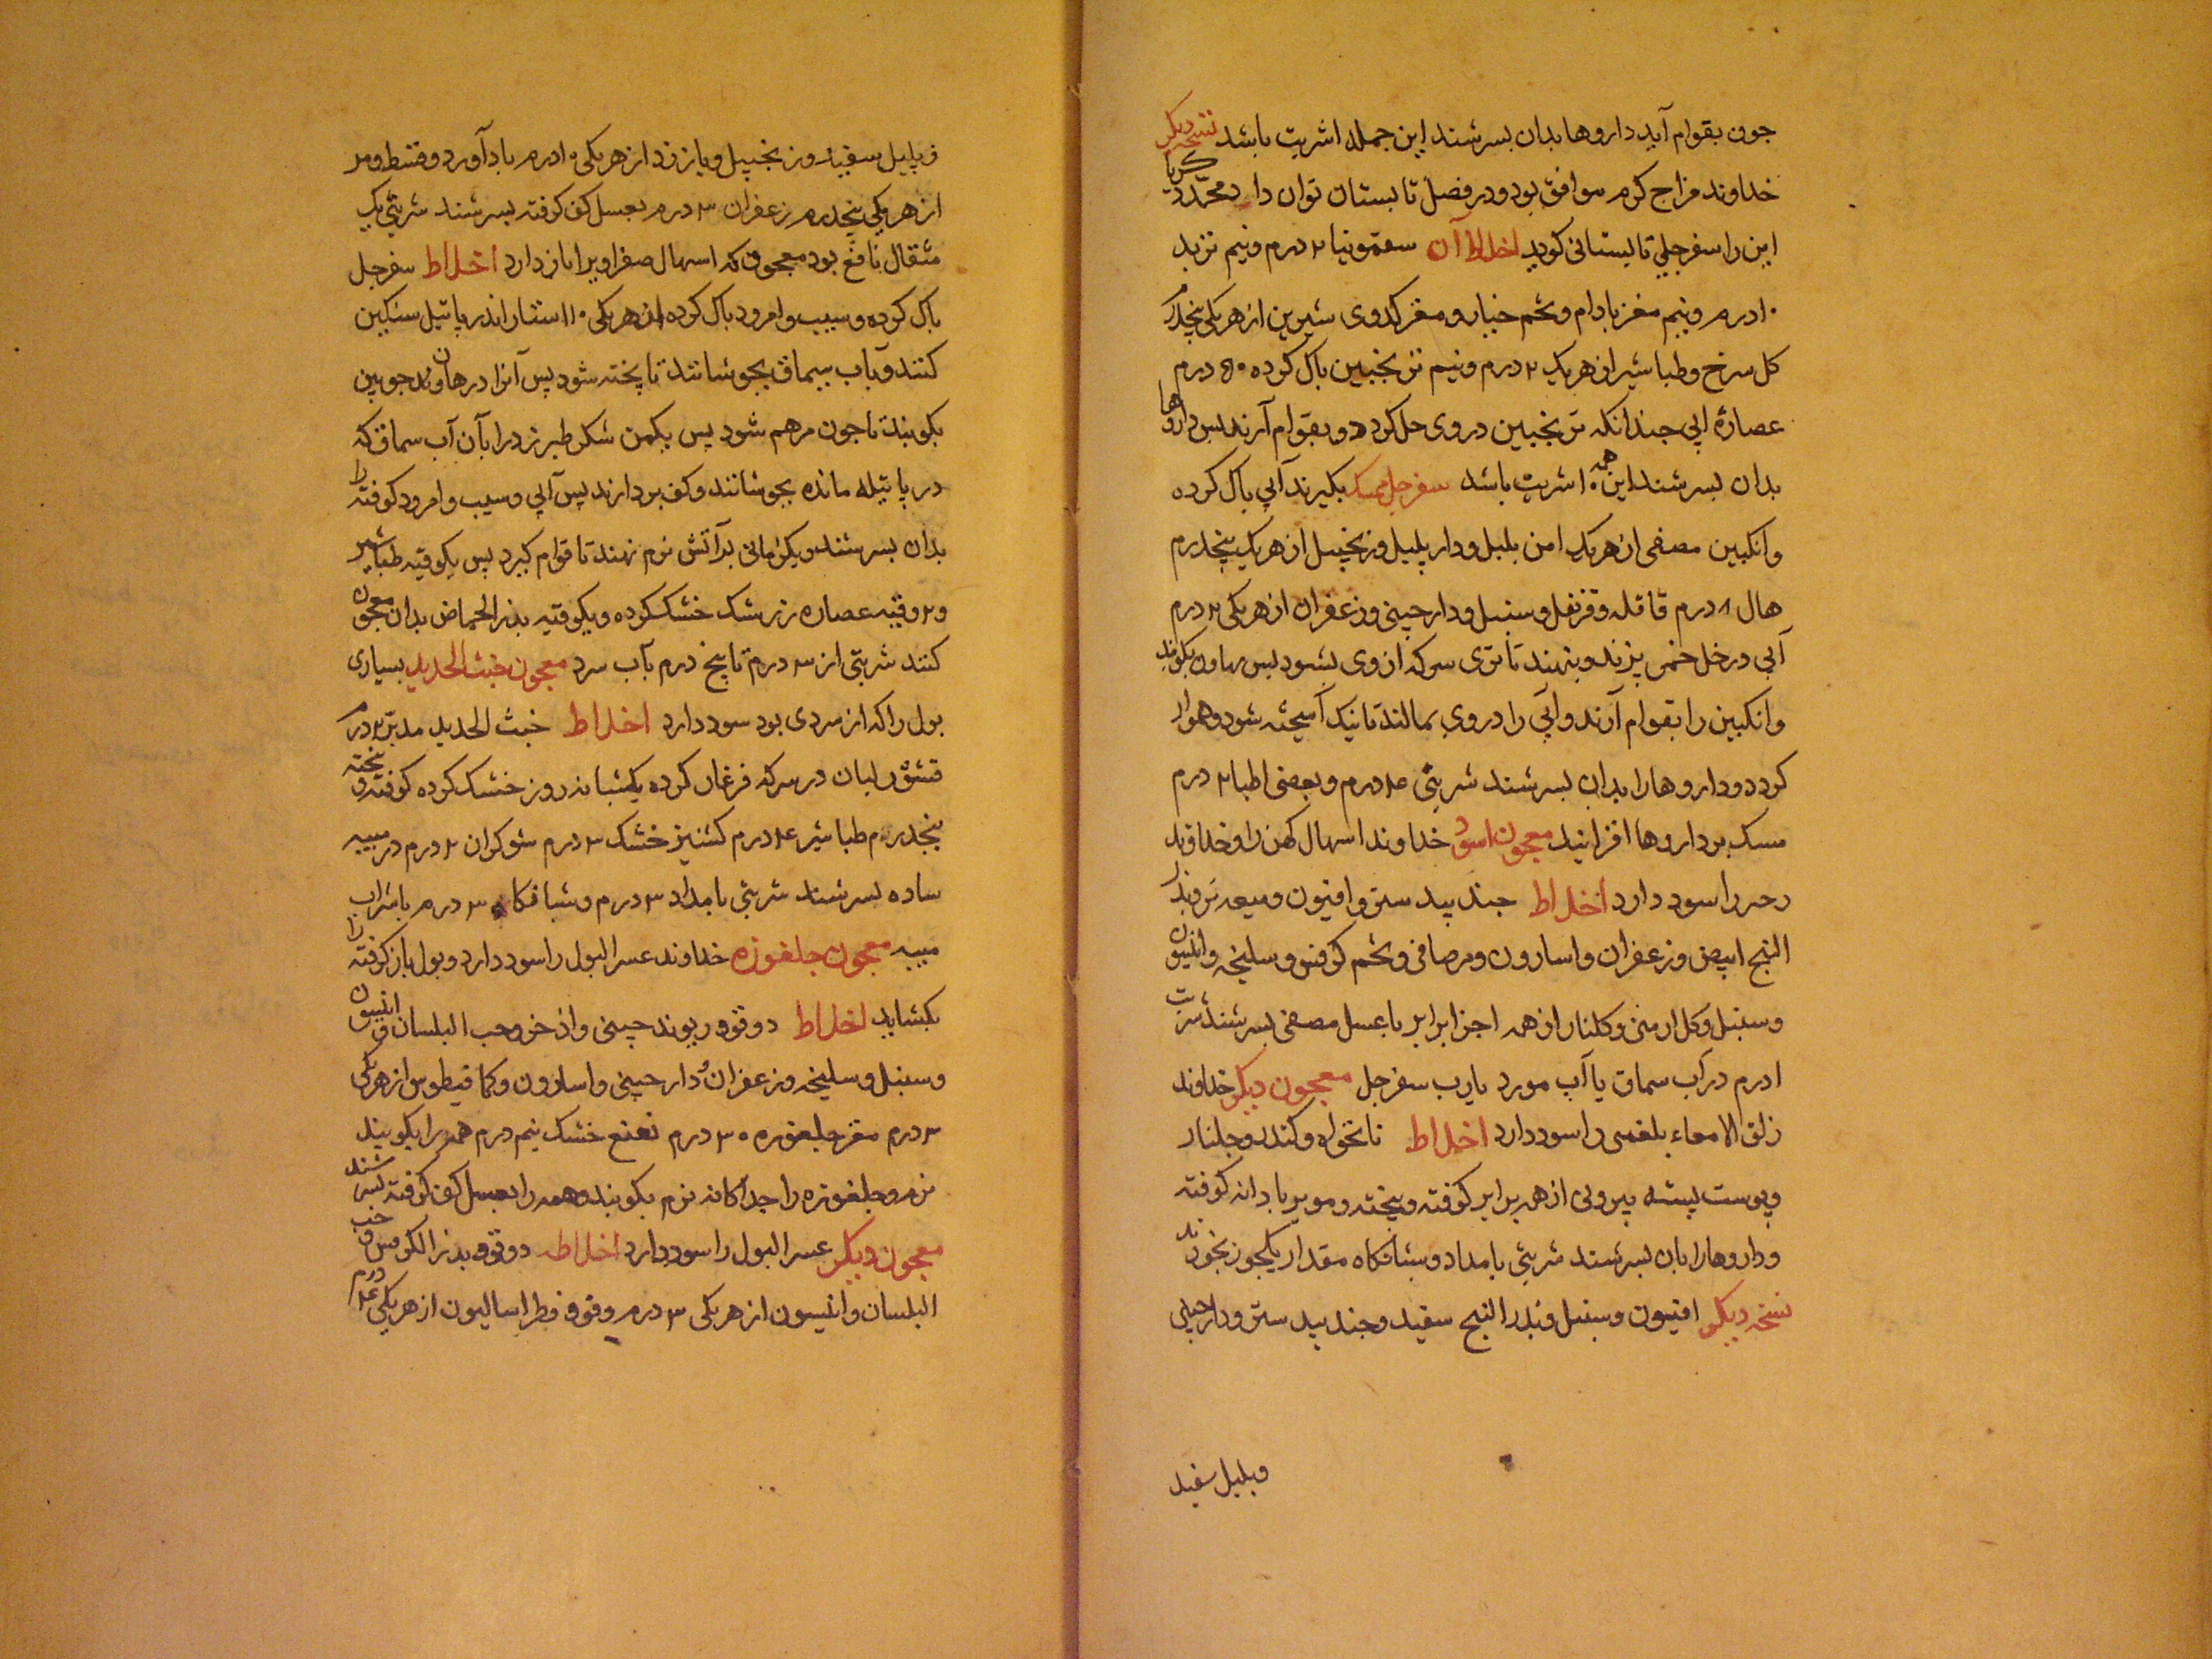 جون بقوام آید داروها بدان بسرشند این جمله اشربت باشد نسخه دیکر
خداوند مزاج کرم موافق بود ودر فصل تابستان توان داد
این را سفرجلی تابستانی کوید اخلاط آن سقمونیا ۲ درم ونیم تربد
۱۰ درم ونیم مغز بادام وتخم خیار ومغز کدوی شیرین از هر یکی پنجدرم
کل سرخ وطباشیر از هر یک ۲ درم ونیم ترنجبین باک کرده ۵۰ درم
عصارۀ آبی جندانکه ترنجبین در وی حل کردد وبقوام آرند بس داروها
بدان بسرشند این همه اشربت باشد سفرجل ممسک بکیرند آبی باک کرده
وانکبین مصفی از هر یک امن بلبل ودار پلیل وزنجبیل از هر یک پنجدرم
هال ۸ درم قاقله وقرنفل وسنبل ودارجینی وزعفران از هر یکی ۲ درم
آبی در خل خمر بزند وبنهند تا تری سرکه از وی بشود بس بهاون بکوبند
وانکبین را بقوام آرند وآبی را در وی بمالند تا نیک آمیخته شود وهموار
کردد وداروها را بدان بسرشند شربتی ۴ درم وبعضی اطبا ۲ درم
مسک بر داروها افزایند معجون اسود خداوند اسهال کهن را وخداوند
زحیر را سود دارد اخلاط جند بید ستر وافیون ومیعه تر وبذر
البنج ابیض وزعفران واسارون ومر صافی وتخم کرفس وسلیخه وانیسون
وسنبل وکل ارمنی وکلنار از همه اجزا برابر با عسل مصفی بسرشند شربت
ادرم در آب سماق یا آب مورد یا رب سفرجل معجون دیکر خداوند
زلق الامعاء بلغمی را سود دارد اخلاط نانخواه وکندر وجلنار
وپوست پسته بیرونی از همه برابر کوفته وبیخته ومویز با دانه کوفته
وداروها را بان بسرشند شربتی بامداد وشبانکاه مقدار یکجوز بخورند
نسخه دیکر افیون وسنبل وبذر البنج سفید وجند بید ستر ودارجینی
وبلبل سفید
وپلیل سفید وزنجبیل وبارزد از هر یکی ۱۰ درم بادآورد وقسط ومر
از هر یکی پنجدرم زعفران ۳ درم بعسل کف کرفته بسرشند شربتی یک
مثقال نافع بود معجون که اسهال صفراوی را باز دارد اخلاط سفرجل
باک کرده وسیب وامرود باک کرده از هر یکی ۱۱۰ ستار اندر پاتیل سنکین
کنند وبآب سماق بجوشانند تا پخته شود پس آنرا در هاون جوبین
بکوبند تا جون مرهم شود پس یکمن شکر طبرزد را بآن آب سماق که
در پاتیله مانده بجوشانند وکف بردارند پس آبی وسیب وامرود کوفته را
بدان بسرشند ویکزمانی بر آتش نرم نهند تا قوام کیرد پس یکوقیه طباشیر
و۲ وقیه عصاره زرشک خشک کرده ویکوقیه بذر الحماض بدان معجون
کنند شربتی از ۳ درم تا پنج درم بآب سرد معجون خبث الحدید بسیاری
بول را که از سردی بود سود دارد اخلاط خبث الحدید مدبر ۲ درم
قشور لبان در سرکه فرغار کرده یکشبانه روز خشک کرده کوفته وبیخته
پنجدرم طباشیر ۴ درم کشنیز خشک ۳ درم شوکران ۲ درم در میبه
ساده بسرشند شربتی بامداد ۳ درم وشبانکاه ۳ درم با شراب
میبه معجون جلغوزه خداوند عسر البول را سود دارد وبول باز کرفته را
بکشاید اخلاط دوقو وریوند جینی واذخر وحب البلسان وانیسون
وسنبل وسلیخه وزعفران ودارجینی واسارون وکمافیطوس از هر یکی
۳ درم مغز جلغوزه ۳۰ درم نعنع خشک نیم درم همه را بکوبند
نرم وجلغوزه را جداکانه نرم بکوبند وهمه را بعسل کف کرفته بسرشند
معجون دیکر عسر البول را سود دارد اخلاطه دوقو وبذر الکرفس وحب
البلسان وانیسون از هر یکی ۳ درم وقوو فطراسالیون از هر یکی ۴ درم